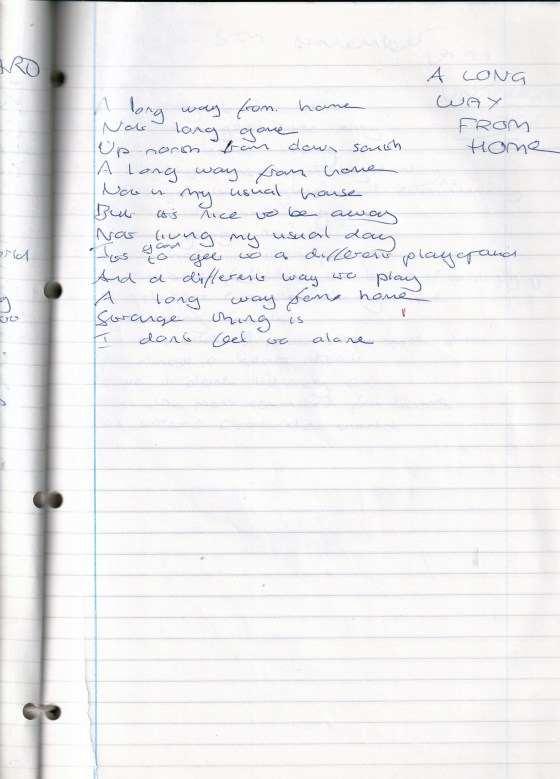 A LONG
WAY
FROM
HOME
A long way from home
Not long gone
Up north from down south
A long way from home
Not in my usual house
But it's nice to be away
Not living my usual day
It's good to get to a different playground
And a different way to play
A long way from home
Strange thing is
I don't feel to alone